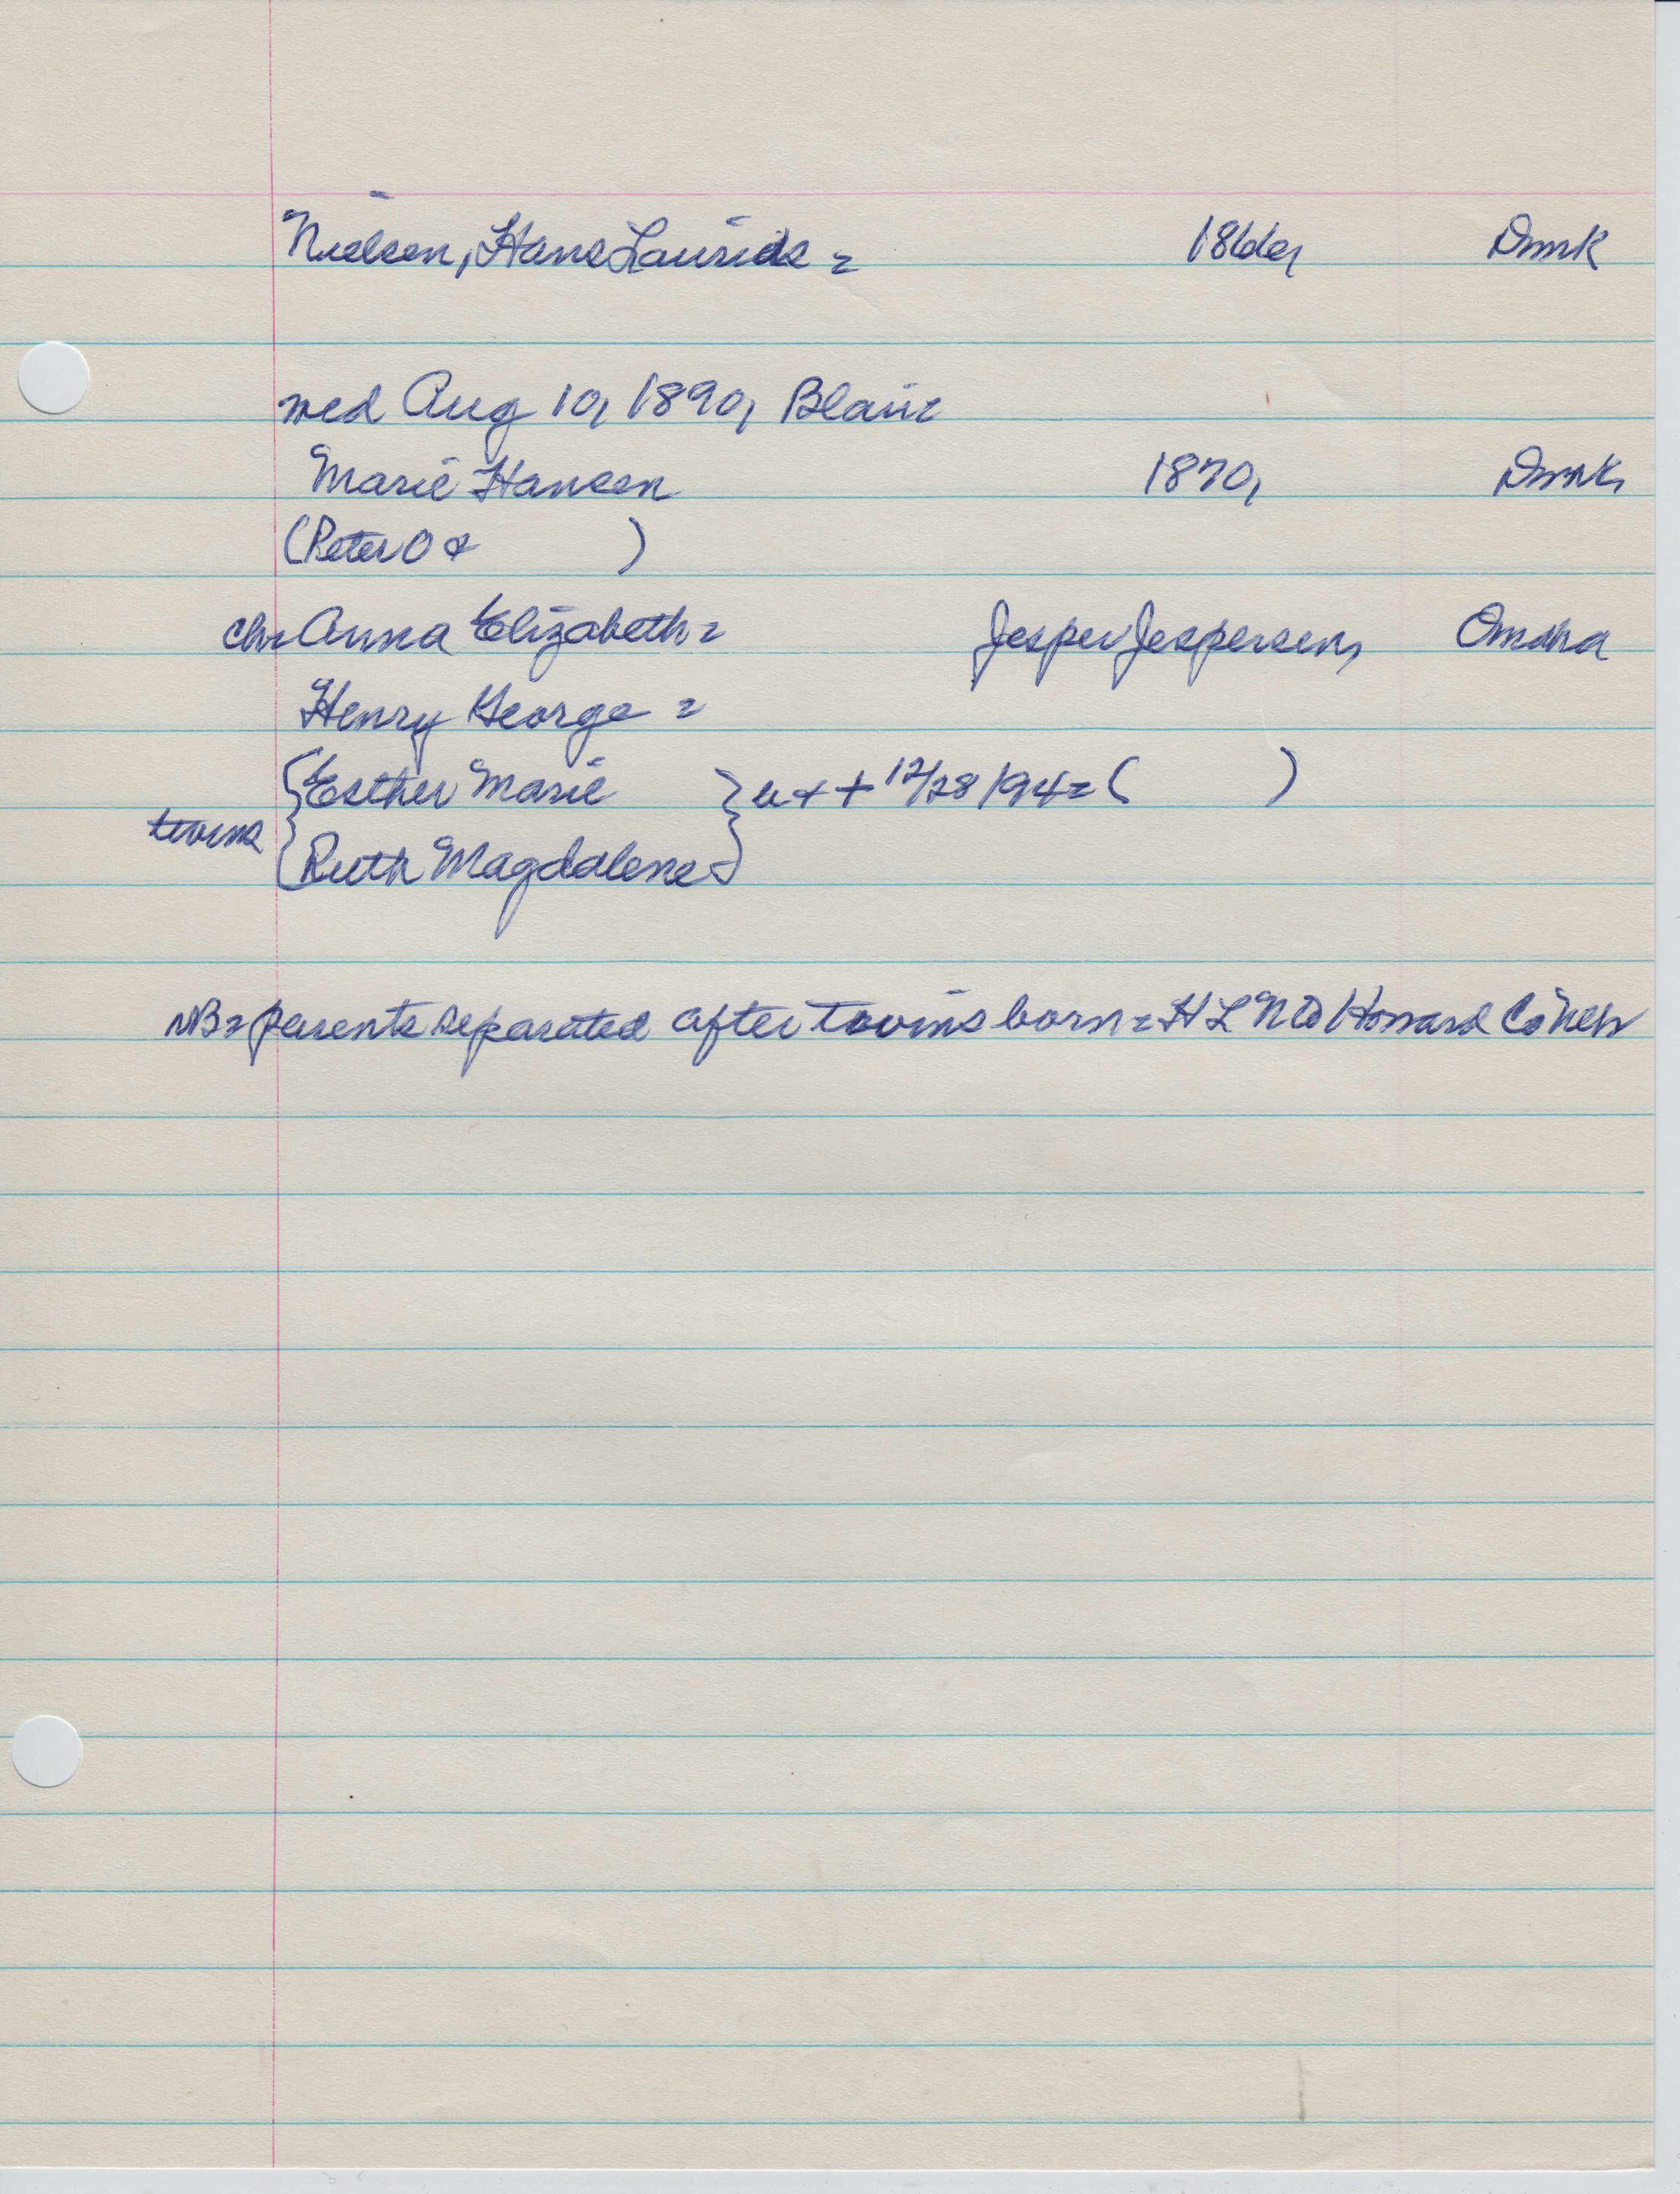 Nielsen, Hans Laurids = Dmrk
med Aug 10, 1890, Blair
Marie Hansen 1870, Dmrk,
(Peter O & )
chr Anna Elizabeth = Jesper Jespersen, Omaha
Henry George =
Esther Marie + 12/28/94 = ( )
twins
Ruth Magdalene
NB = parents separated after twins born = H L N to Howard Co Neb